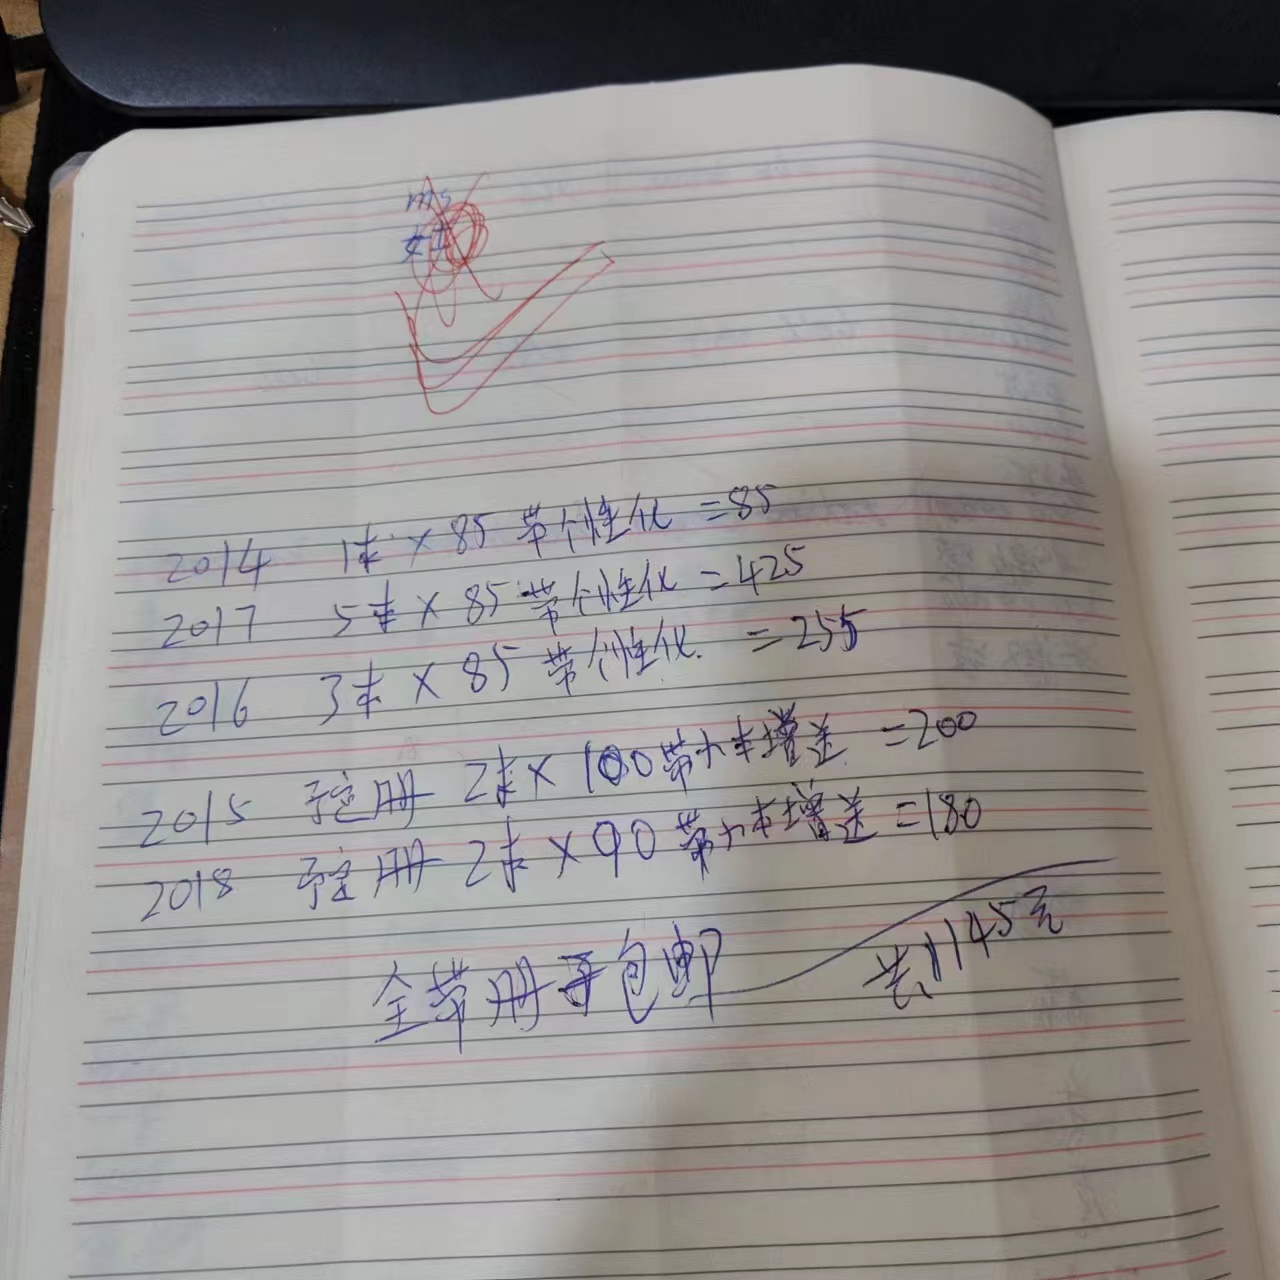 2014 1本×85 带个性化 =85
2017 5本×85 带个性化 =425
2016 3本×85 带个性化. =255
2015 预定册 2本×100带小本增送 =200
2018 预定册 2本×90 带小本增送 =180
全带册子包邮 共1145元